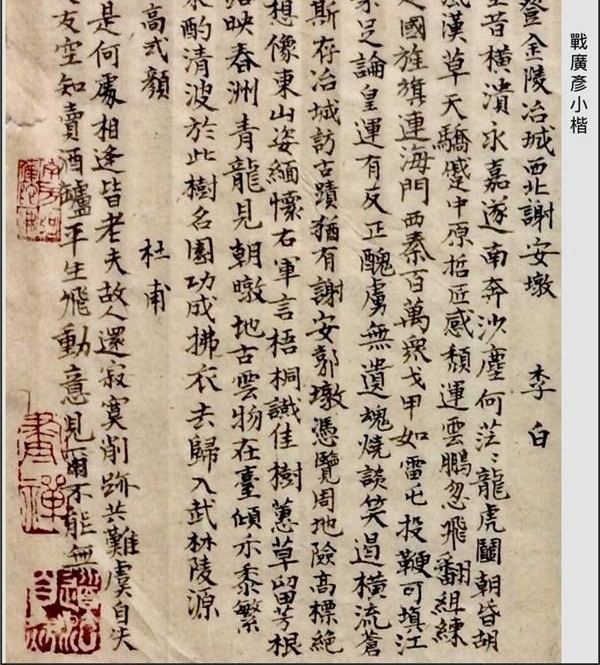 戰廣彥小楷
登金陵冶城西北謝安墩 李白
室昔橫潰永嘉遂南奔沙塵何茫〻龍虎鬭朝昏胡
風漢草天驕蹙中原哲匠感頹運雲鵬忽飛翻組練
國旌旗連海門西秦百萬衆戈甲如雷屯投鞭可填江
足論皇運有反正醜虜無遺魂燒談笑遏橫流蒼
斯存冶城訪古蹟猶有謝安郭墩憑覽周地險高標絕
想像東山姿緬懷右軍言梧桐識佳樹蕙草留芳根
映春洲青龍見朝暾地古雲物在臺傾禾黍繁
來酌清波於此樹名園功成拂衣去歸入武林陵源
高式顏 杜甫
是何處相逢皆老夫故人還寂寞削跡共難虞自失
友空知賣酒壚平生飛動意見爾不能無
畫禪